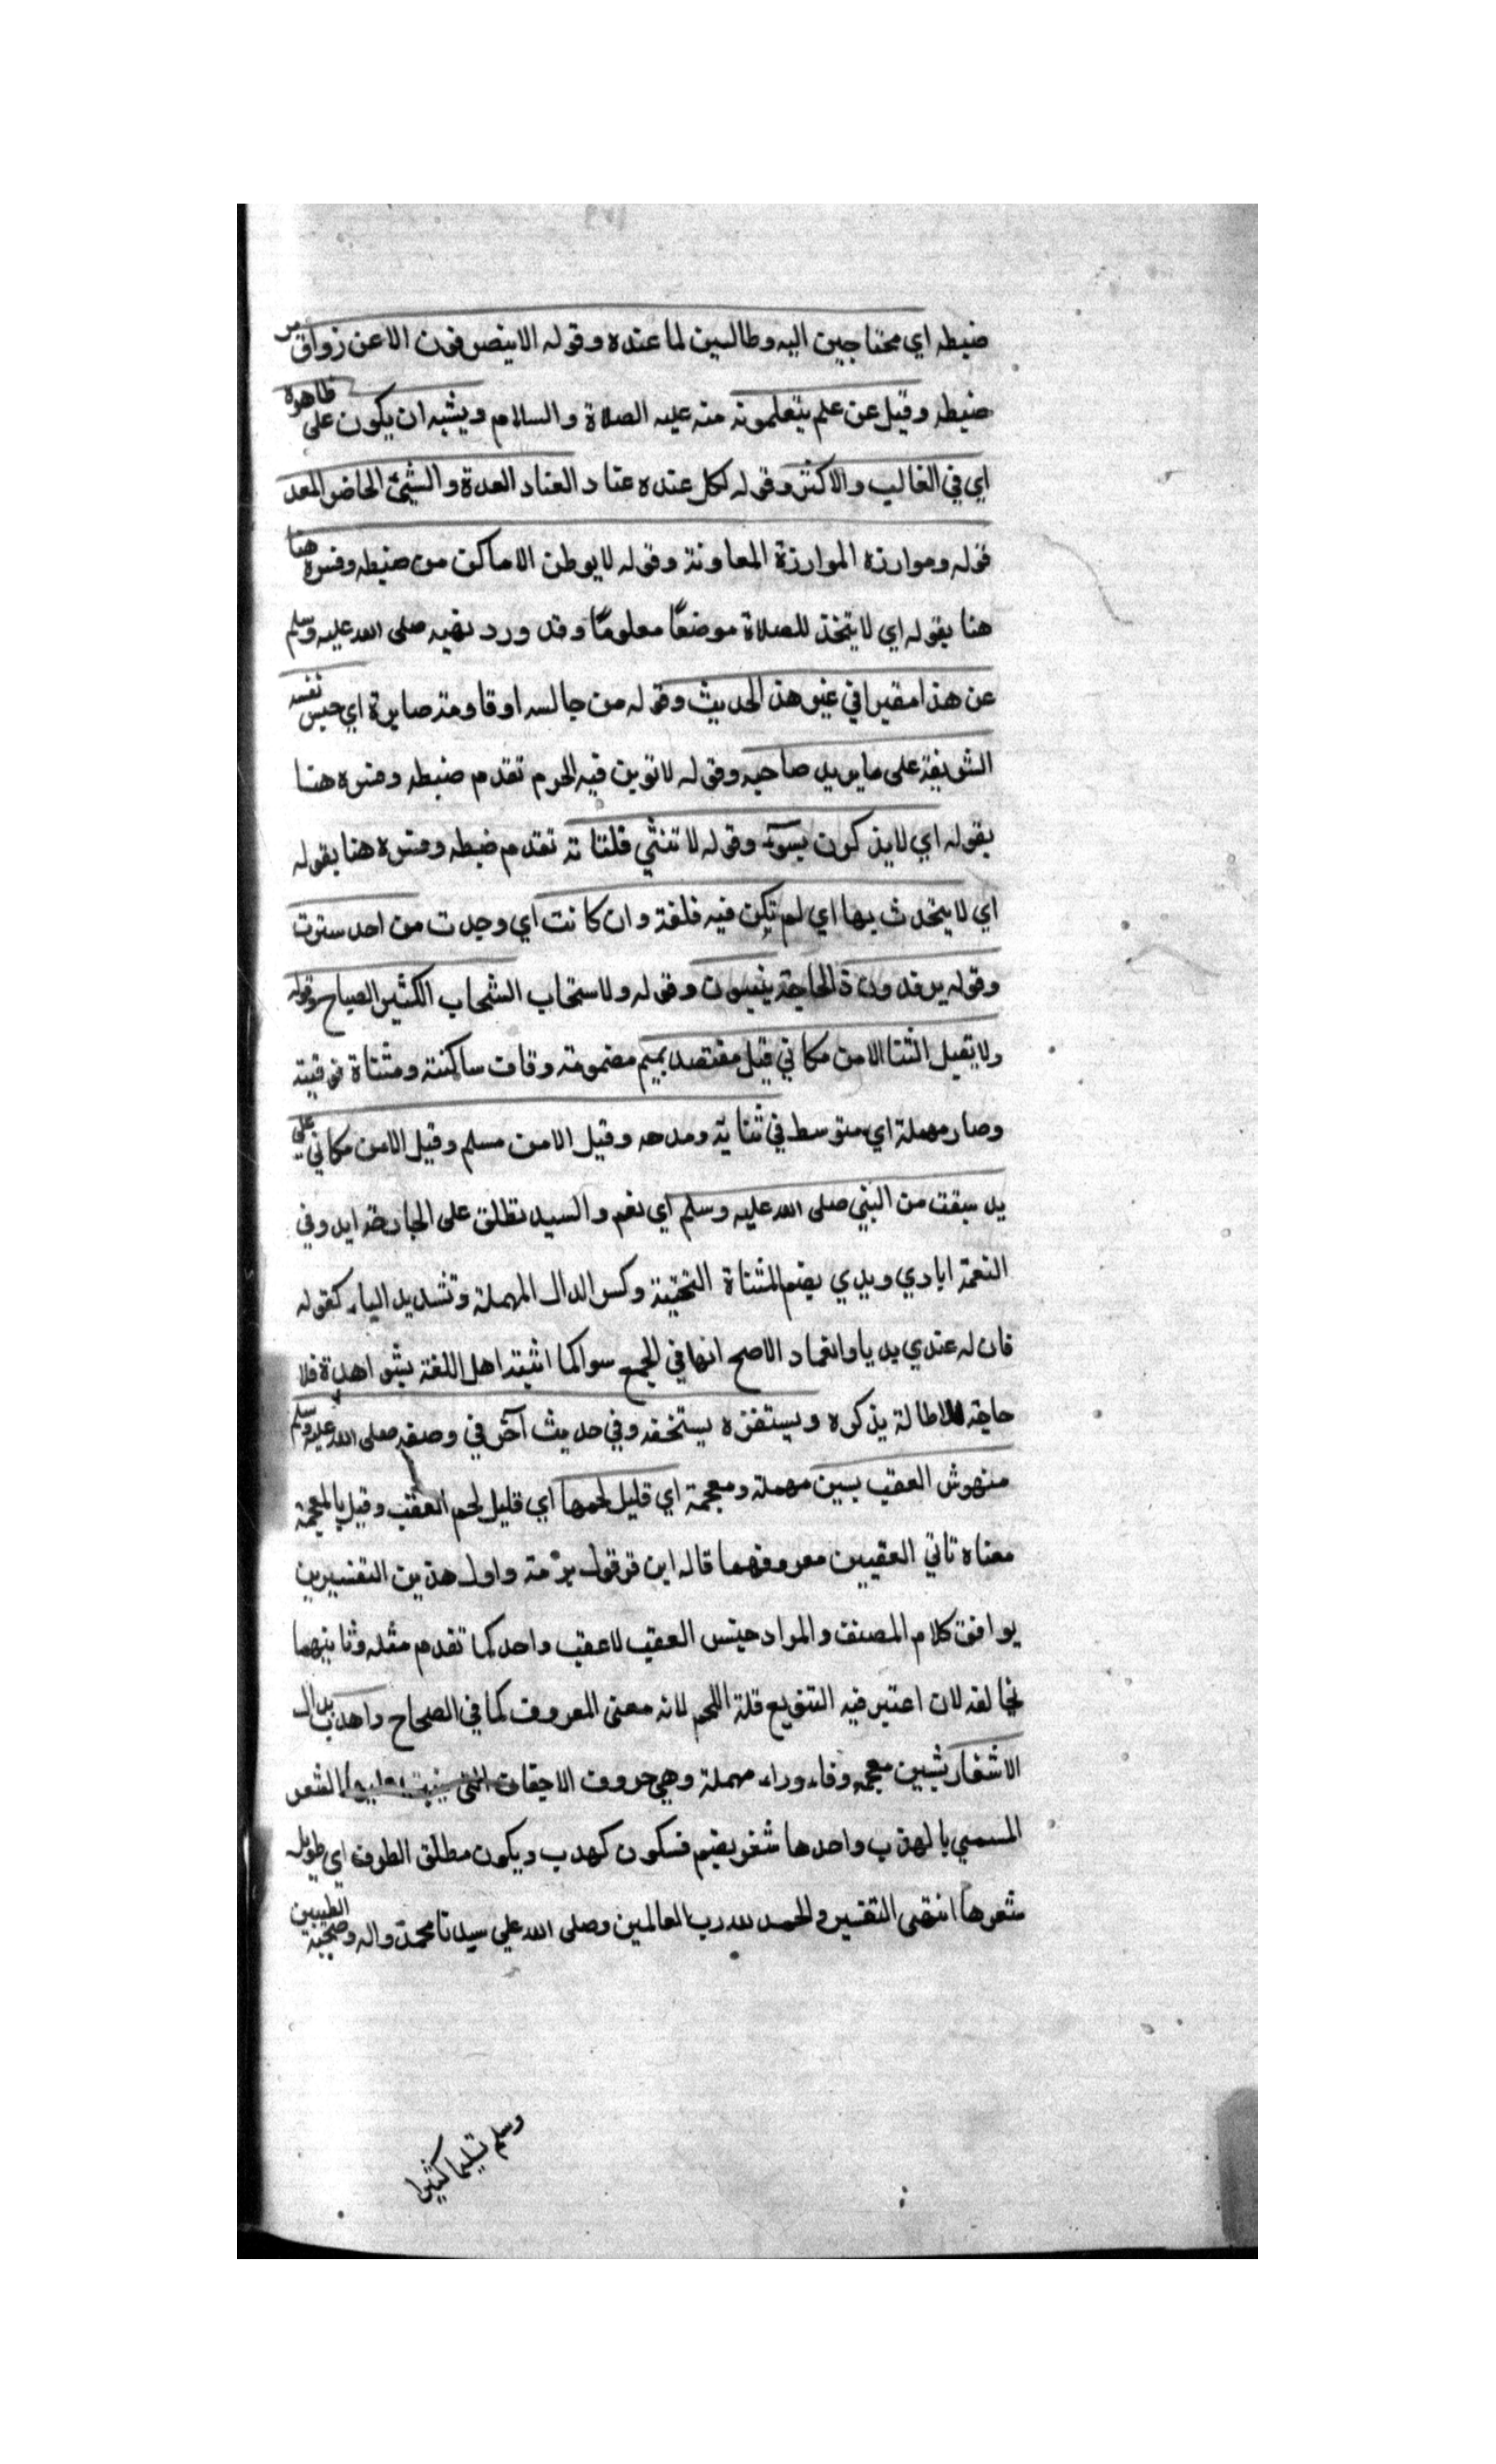 ضبطه اي محتاجين اليه وطالبين لما عنده وقوله الا ينصرفون الا عن زواق مر
ضبطه وقيل عن علم يتعلمونه منه عليه الصلاة والسلام ويشبه ان يكون على ظاهره
اي في الغالب والاكثر وقوله لكل عنده عتاد العتاد العدة والشيئ الحاضر المعد
قوله وموارزة الموارزة المعاونة وقوله لا يوطن الاماكن من ضبطه وفسره هنا
هنا بقوله اي لا يتخذ للصلاة موضعًا معلومًا وقد ورد نهيه صلى الله عليه وسلم
عن هذا مفسرا في غير هذ الحديث وقوله من جالسه اوقاومه صابرة اي حبس نفسه
الشريفة على ما يريد صاحبه وقوله لا توبن فيه الحرم تقدم ضبطه وفسره هنا
بقوله اي لا يذكرون بسوء وقوله لا تنثي فلتاته تقدم ضبطه وفسره هنا بقوله
اي لا يتحدث بها اي لم تكن فيه فلغة وان كانت اي وجدت من احد سترت
وقوله يرفدون ذ الحاجة يعينون وقوله ولا سخاب السخاب الكثير الصياح وقوله
ولا يقبل الثنا الا من مكافي قيل مقتصد بميم مضمومة وقاف ساكنة ومثناة فوقية
وصاد مهملة اي متوسط في ثنايه ومدحه وقيل الا من مسلم وقيل الا من مكافي على
يد سبقت من النبي صلى الله عليه وسلم اي نعم والسيد تطلق على الجارحة ايد وفي
النعمة ايادي ويدي بضم المثناة التحتية وكسر الدال المهملة وتشديد الياء كقوله
فان له عندي يديا وانعما د الاصح انها في الجمع سوا كما اثبته اهل اللغة بشواهده فلا
حاجة للاطالة بذكره ويستفزه يستخفه وفي حديث آخر في وصفه صلى الله عليه وسلم
منهوش العقب بسين مهملة ومعجمة اي قليل لحمها اي قليل لحم العقب وقيل بالمعجمة
معناه ناتي العقبين معروفهما قاله ابن قرقول برمته واول هذين التفسيرين
يوافق كلام المصنف والمراد جنس العقب لا عقب واحد كما تقدم مثله وثانيهما
يخالفه لان اعتبر فيه التنويع قلة اللحم لانه معنى المعروف كما في الصحاح واهدب بدال
الاشفار بشين معجمه وفاء وراء مهملة وهي حروف الاجفان التي ينبت عليها الشعر
المسمي بالهدب واحدها شفر بضم فسكون كهدب ويكون مطلق الطرف اي طويل
شعرها انتهى التفسير والحمد لله رب العالمين وصلى الله على سيدنا محمد واله وصحبه الطيبين
وسلم تسليما كثيرا